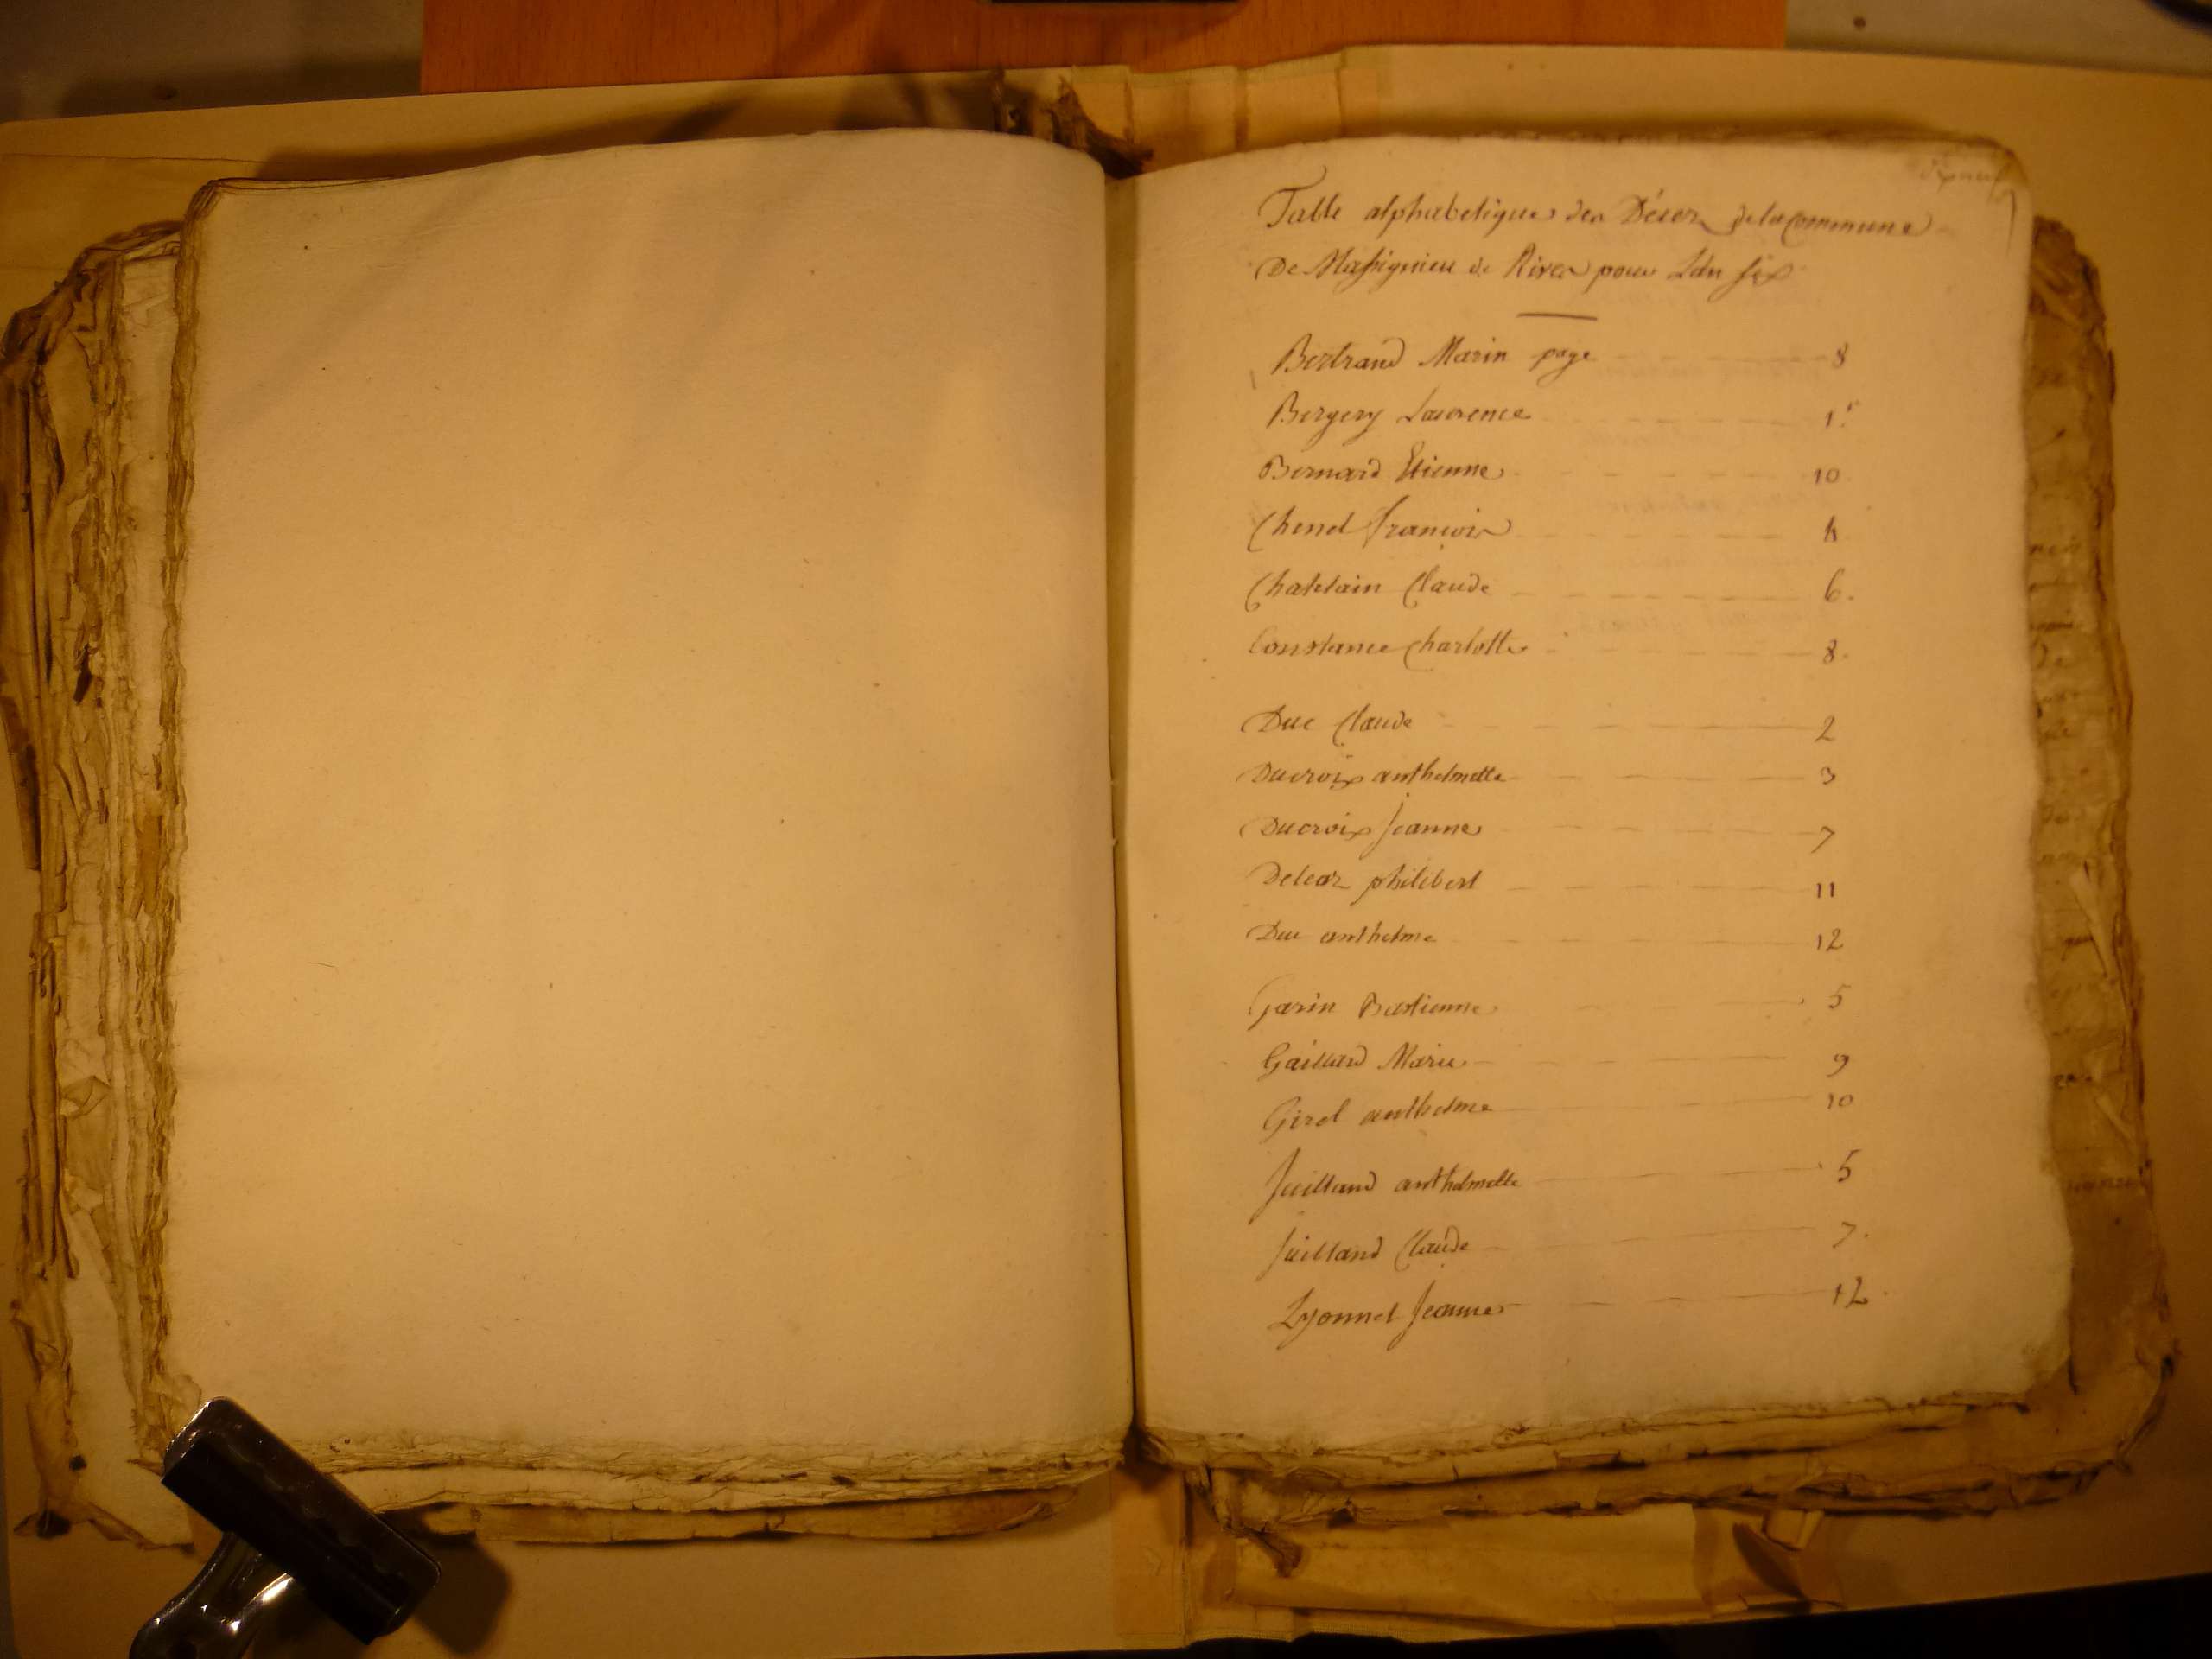 dixneuf
Table alphabetique des Décez de la Commune
De Massignieu de Rives pour Lan six
Bertrand Marin page 8
Bergery Laurence 1.r
Bernard Etienne 10
Chenel francois 4
Chatelain Claude 6.
Constance Charlotte 8.
Duc Claude 2
Ducroix anthelmette 3
Ducroix Jeanne 7
Deleaz philibert 11
Duc anthelme 12
Garin Bastienne 5
Gaillard Marie 9
Girel anthelme 10
Juilland anthelmette 5
Juilland Claude 7.
Lyonnel Jeanne 12